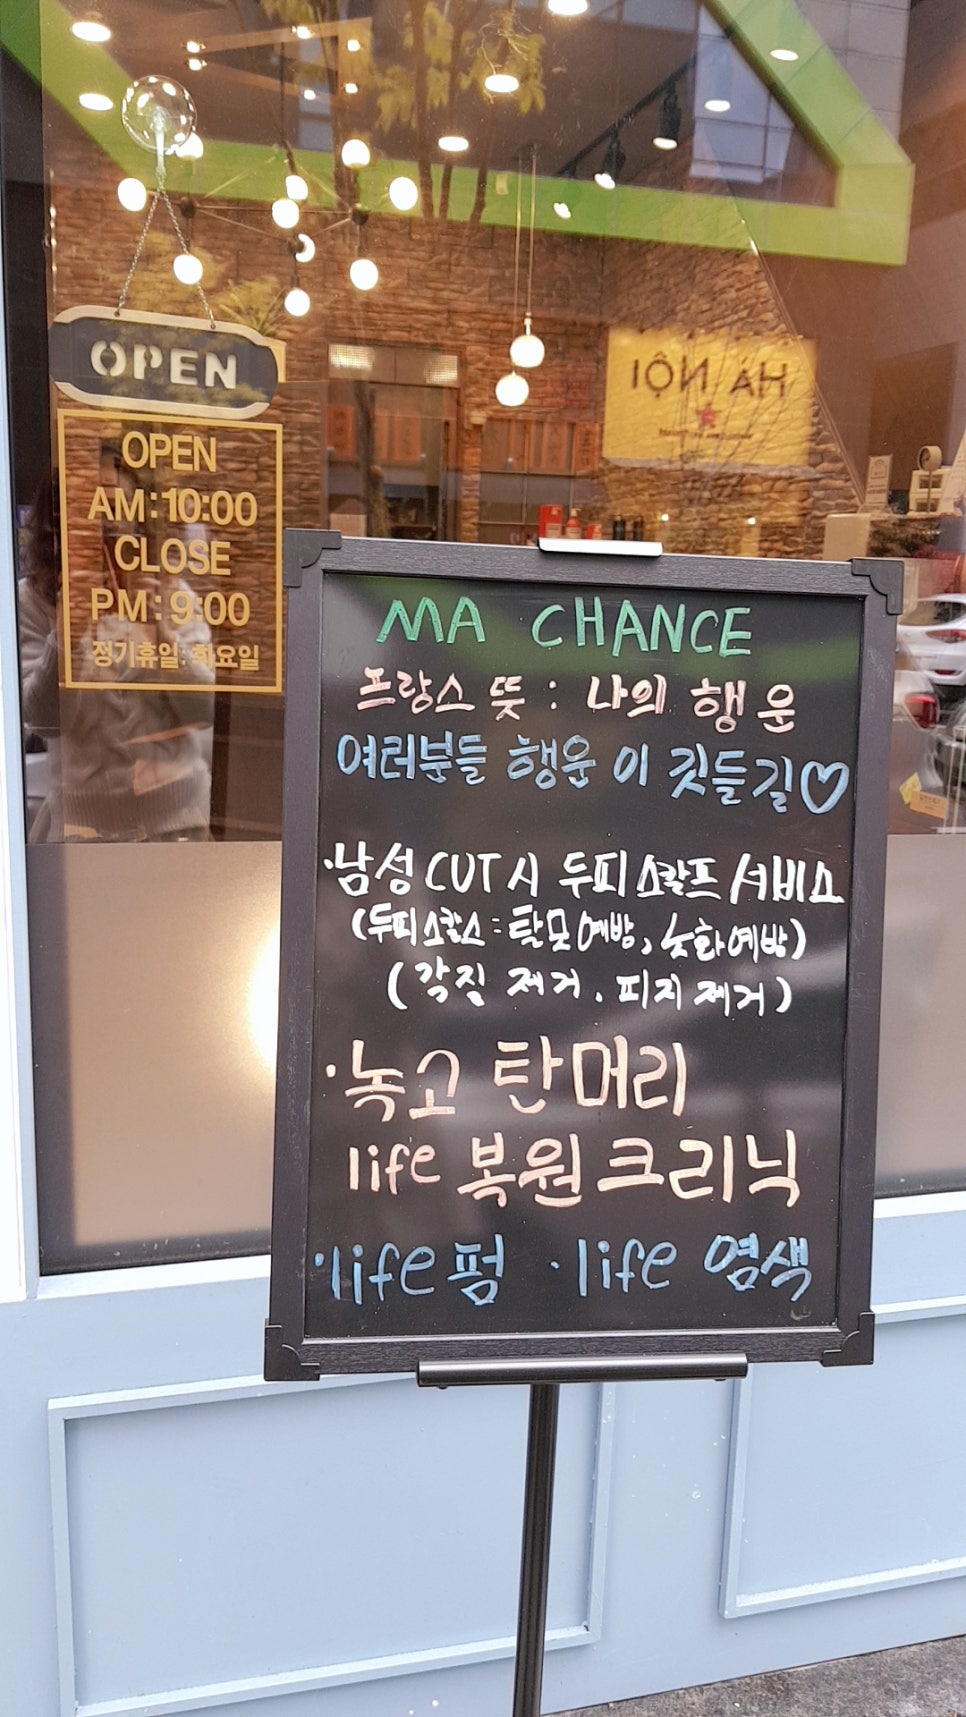 OPEN
OPEN
AM:10:00
CLOSE
PM:9:00
정기휴일: 화요일
HÀ NỘI
MA CHANCE
프랑스 뜻 : 나의 행운
여러분들 행운이 깃들길♡
·남성 CUT시 두피 스칼프 서비스
(두피스칼프: 탈모예방, 노화예방)
(각질 제거, 피지 제거)
·녹고 탄머리
life 복원크리닉
·life펌 ·life 염색